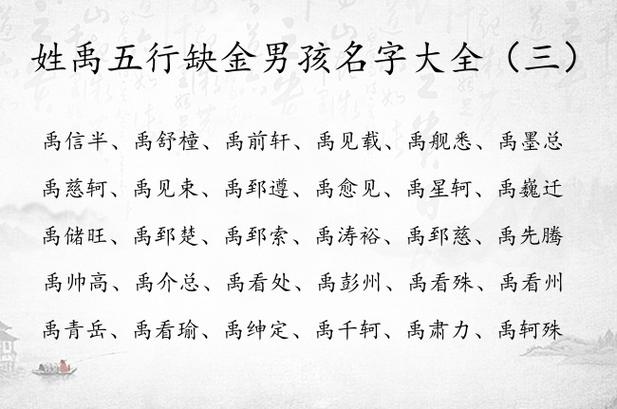 姓禹五行缺金男孩名字大全（三）
禹信半、禹舒橦、禹前轩、禹见载、禹舰悉、禹墨总
禹慈轲、禹见束、禹郅遵、禹愈见、禹星轲、禹巍迁
禹储旺、禹郅楚、禹郅索、禹涛裕、禹郅慈、禹先腾
禹帅高、禹介总、禹看处、禹彭州、禹看殊、禹看州
禹青岳、禹看瑜、禹绅定、禹千轲、禹肃力、禹轲殊